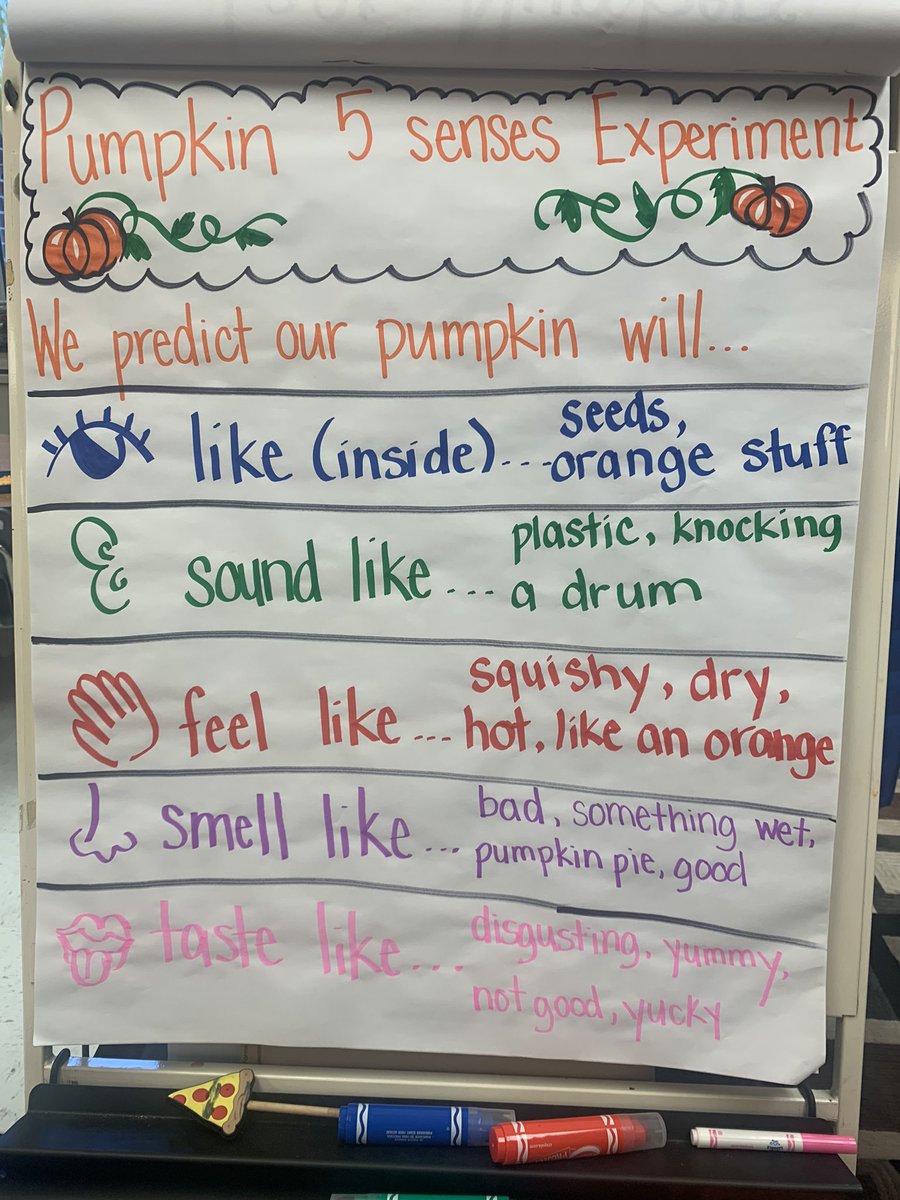 Pumpkin 5 senses Experiment
We predict our pumpkin will...
like (inside)... seeds,
orange stuff
sound like ... plastic, knocking
a drum
feel like ... squishy, dry,
hot, like an orange
smell like ... bad, something wet,
pumpkin pie, good
taste like ... disgusting, yummy,
not good, yucky